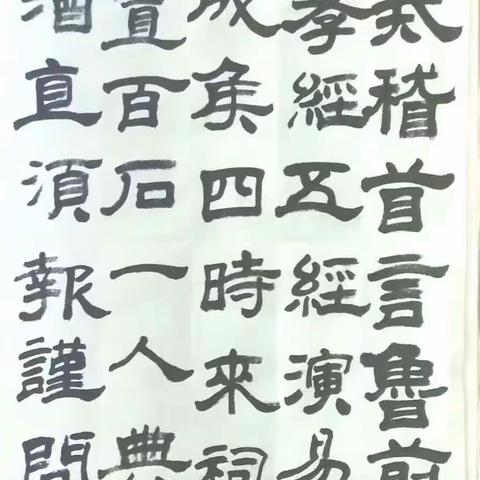 戒稽首言魯前
孝經五經演易
成矦四時來祠
置百石一人典
酒直須報謹問